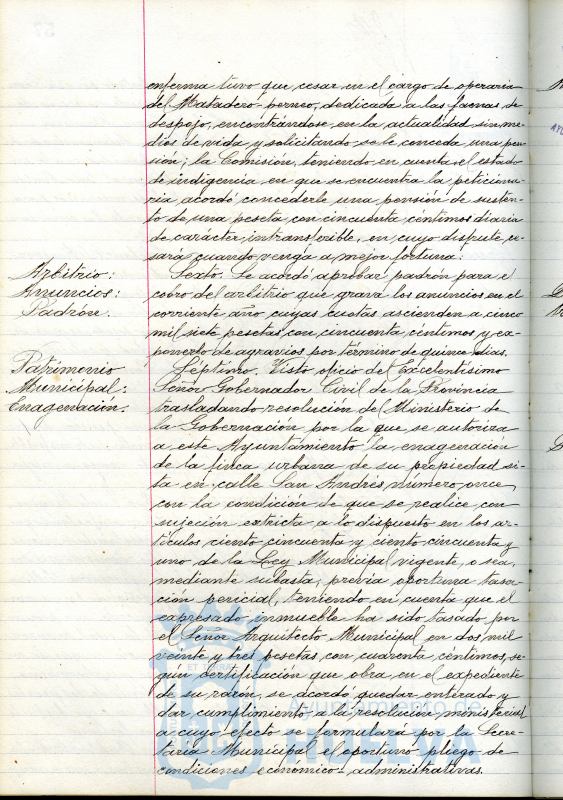 enferma tuvo que cesar en el cargo de operaria
del Matadero-porneo, dedicada a las faenas de
despojo, encontrándose en la actualidad sin me-
dios de vida y solicitando se le conceda una pen-
sión; la Comisión, teniendo en cuenta el estado
de indigencia en que se encuentra la peticiona-
ria acordó concederle una pensión de susten-
to de una peseta con cincuenta céntimos diaria
de carácter intransferible, en cuyo disfrute ce-
sará cuando venga a mejor fortuna:
Arbitrio:
Anuncios:
Padrón.
Sexto. Se acordó aprobar padrón para el
cobro del arbitrio que grava los anuncios en el
corriente año cuyas cuotas ascienden a cinco
mil siete pesetas con cincuenta céntimos y ex-
ponerlo de agravios por término de quince dias.
Patrimonio
Municipal:
Enagenación.
Séptimo. Visto oficio del Excelentísimo
Señor Gobernador Civil de la Provincia
trasladando resolución del Ministerio de
la Gobernación por la que se autoriza
a este Ayuntamiento la enagenación
de la finca urbana de su propiedad si-
ta en calle San Andrés número once,
con la condición de que se realice con
sujeción extricta a lo dispuesto en los ar-
tículos ciento cincuenta y ciento cincuenta y
uno de la Ley Municipal vigente, o sea,
mediante subasta, previa oportuna tasa-
ción pericial, teniendo en cuenta que el
expresado inmueble ha sido tasado por
el Señor Arquitecto Municipal en dos mil
veinte y tres pesetas con cuarenta céntimos, se-
gún certificación que obra en el expediente
de su razón, se acordó quedar enterado y
dar cumplimiento a la resolución ministerial
a cuyo efecto se formulará por la Secre-
taría Municipal el oportuno pliego de
condiciones económico-administrativas.
Ayuntamiento de
HUELVA